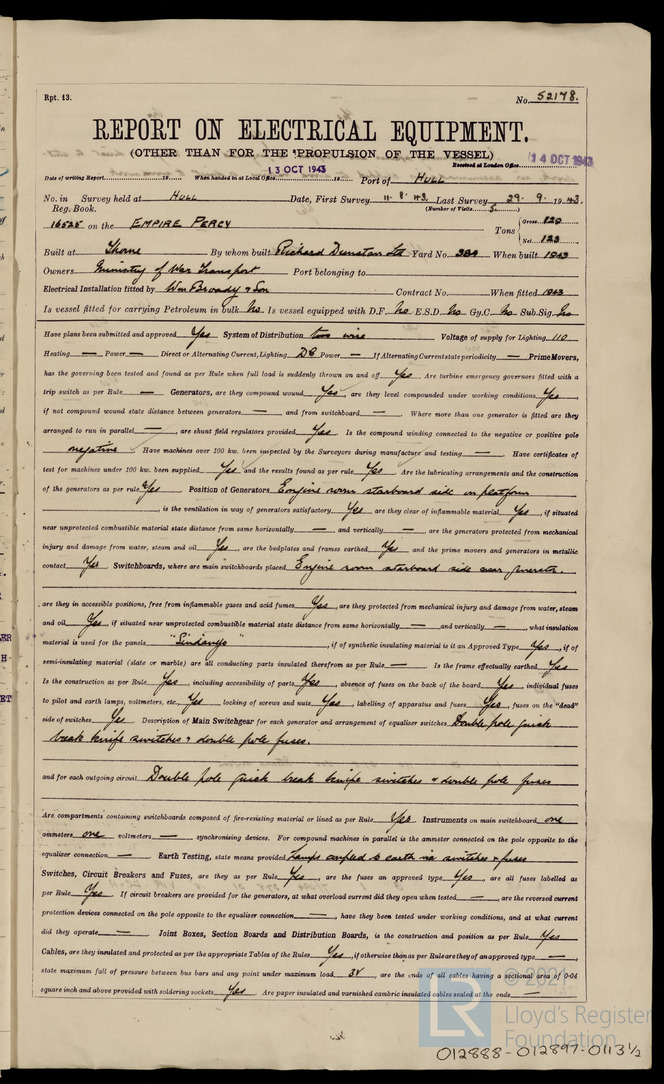 Rpt. 13.
No. 52178.
REPORT ON ELECTRICAL EQUIPMENT.
(OTHER THAN FOR THE PROPULSION OF THE VESSEL)
Received at London Office 14 OCT 1943
Date of writing Report 19 When handed in at Local Office 13 OCT 1943 19 Port of HULL
No. in Survey held at HULL Date, First Survey 11.8.43. Last Survey 29.9.1943.
Reg. Book. (Number of Visits 5)
16525 on the EMPIRE PERCY Tons Gross 820
Net 123
Built at Thorne By whom built Richard Dunston Ltd Yard No. 384 When built 1943
Owners Ministry of War Transport Port belonging to
Electrical Installation fitted by Wm Broady & Son Contract No. When fitted 1943
Is vessel fitted for carrying Petroleum in bulk No Is vessel equipped with D.F. No E.S.D. No Gy.C. No Sub.Sig. No
Have plans been submitted and approved Yes System of Distribution two wire Voltage of supply for Lighting 110
Heating — Power — Direct or Alternating Current, Lighting DC Power — If Alternating Current state periodicity — Prime Movers,
has the governing been tested and found as per Rule when full load is suddenly thrown on and off Yes Are turbine emergency governors fitted with a
trip switch as per Rule — Generators, are they compound wound Yes, are they level compounded under working conditions Yes,
if not compound wound state distance between generators — and from switchboard —. Where more than one generator is fitted are they
arranged to run in parallel —, are shunt field regulators provided Yes. Is the compound winding connected to the negative or positive pole
negative Have machines over 100 kw. been inspected by the Surveyors during manufacture and testing —. Have certificates of
test for machines under 100 kw. been supplied Yes and the results found as per rule Yes. Are the lubricating arrangements and the construction
of the generators as per rule Yes. Position of Generators Engine room starboard side in platform
, is the ventilation in way of generators satisfactory Yes are they clear of inflammable material Yes, if situated
near unprotected combustible material state distance from same horizontally — and vertically —, are the generators protected from mechanical
injury and damage from water, steam and oil Yes, are the bedplates and frames earthed Yes and the prime movers and generators in metallic
contact Yes Switchboards, where are main switchboards placed Engine room starboard side near generator.
are they in accessible positions, free from inflammable gases and acid fumes Yes, are they protected from mechanical injury and damage from water, steam
and oil Yes, if situated near unprotected combustible material state distance from same horizontally — and vertically —, what insulation
material is used for the panels "Sindanyo", if of synthetic insulating material is it an Approved Type Yes, if of
semi-insulating material (slate or marble) are all conducting parts insulated therefrom as per Rule —. Is the frame effectually earthed Yes
Is the construction as per Rule Yes, including accessibility of parts Yes, absence of fuses on the back of the board Yes, individual fuses
to pilot and earth lamps, voltmeters, etc. Yes locking of screws and nuts Yes, labelling of apparatus and fuses Yes, fuses on the "dead"
side of switches Yes Description of Main Switchgear for each generator and arrangement of equaliser switches Double pole quick
break knife switches & double pole fuses.
and for each outgoing circuit Double pole quick break knife switches & double pole fuses
Are compartments containing switchboards composed of fire-resisting material or lined as per Rule Yes. Instruments on main switchboard one
ammeters one voltmeters — synchronising devices. For compound machines in parallel is the ammeter connected on the pole opposite to the
equaliser connection —. Earth Testing, state means provided Lamps coupled to earth via switches & fuses
Switches, Circuit Breakers and Fuses, are they as per Rule Yes, are the fuses an approved type Yes, are all fuses labelled as
per Rule Yes If circuit breakers are provided for the generators, at what overload current did they open when tested — are the reversed current
protection devices connected on the pole opposite to the equaliser connection —, have they been tested under working conditions, and at what current
did they operate —. Joint Boxes, Section Boards and Distribution Boards, is the construction and position as per Rule Yes
Cables, are they insulated and protected as per the appropriate Tables of the Rules Yes, if otherwise than as per Rule are they of an approved type —,
state maximum fall of pressure between bus bars and any point under maximum load 3V, are the ends of all cables having a sectional area of 0·04
square inch and above provided with soldering sockets Yes. Are paper insulated and varnished cambric insulated cables sealed at the ends —
© 2021
LR Lloyd's Register
Foundation
012888-012897-0113½